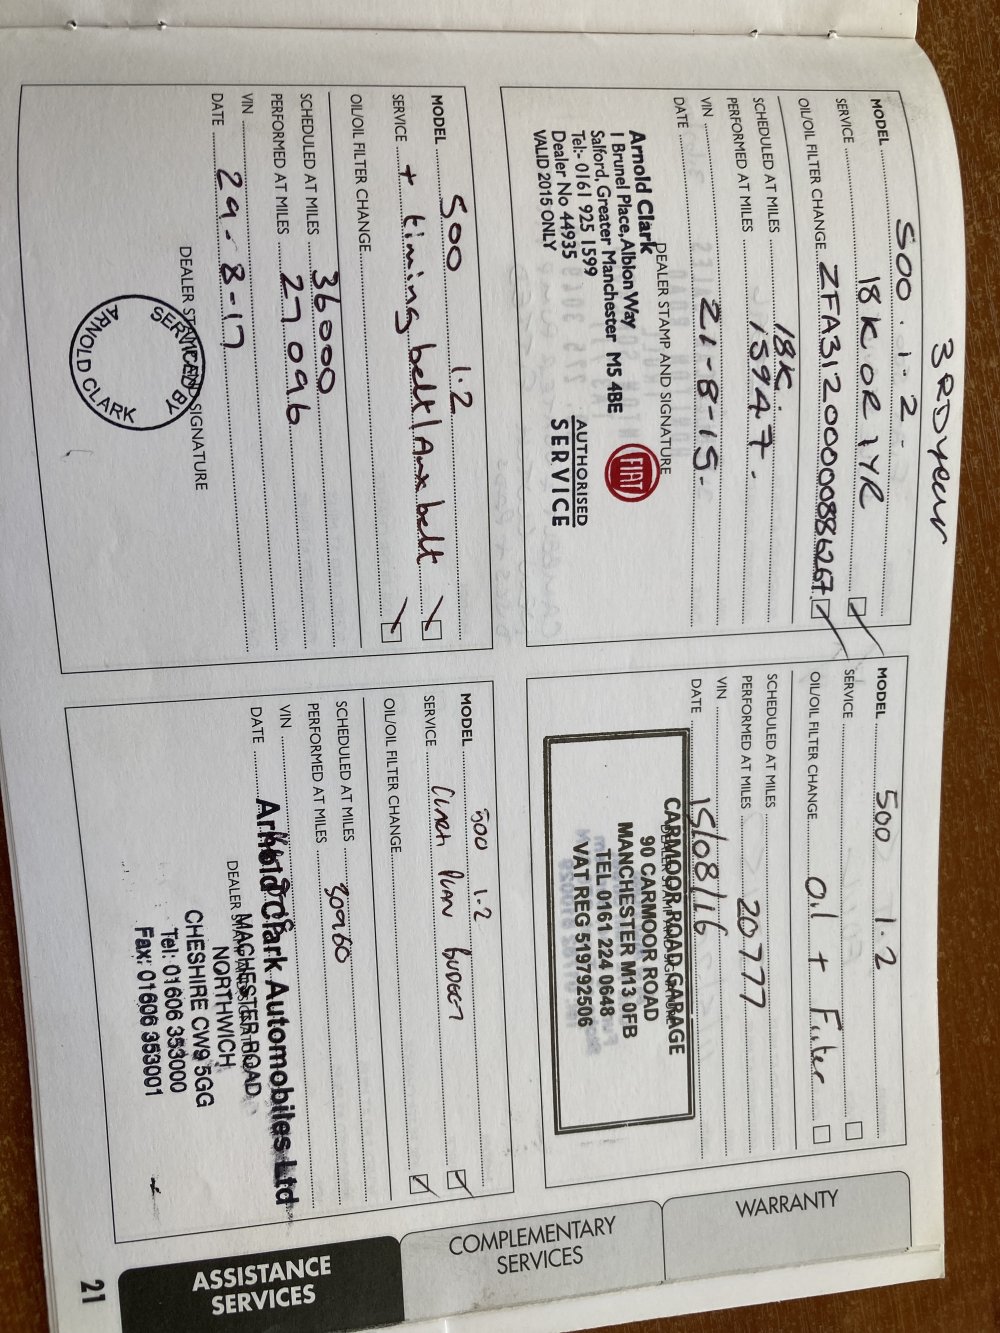 3RD year
MODEL 500 . 1.2 -
SERVICE 18K OR 1YR
OIL/OIL FILTER CHANGE ZFA31200000886267
SCHEDULED AT MILES 18K.
PERFORMED AT MILES 15947.
VIN
DATE 21-8-15-
DEALER STAMP AND SIGNATURE
Arnold Clark
1 Brunel Place, Albion Way
Salford, Greater Manchester M5 4BE
Tel:- 0161 925 1599
Dealer No 44935
VALID 2015 ONLY
FIAT
AUTHORISED
SERVICE
MODEL 500 1.2
SERVICE
OIL/OIL FILTER CHANGE Oil + Filter
SCHEDULED AT MILES
PERFORMED AT MILES 20777
VIN
DATE 15/08/16
CARMOOR ROAD GARAGE
90 CARMOOR ROAD
MANCHESTER M13 0FB
TEL 0161 224 0648
VAT REG 519792506
MODEL 500 1.2
SERVICE + timing belt/Aux belt
OIL/OIL FILTER CHANGE
SCHEDULED AT MILES 36000
PERFORMED AT MILES 27096
VIN
DATE 29-8-17
DEALER STAMP AND SIGNATURE
SERVICED BY
ARNOLD CLARK
MODEL 500 1.2
SERVICE PLAN BUDGET
OIL/OIL FILTER CHANGE
SCHEDULED AT MILES
PERFORMED AT MILES 30960
VIN
DATE
Arnold Clark Automobiles Ltd
MACHESTER ROAD
NORTHWICH
CHESHIRE CW9 5GG
Tel: 01606 353000
Fax: 01606 353001
WARRANTY
COMPLEMENTARY
SERVICES
ASSISTANCE
SERVICES
21